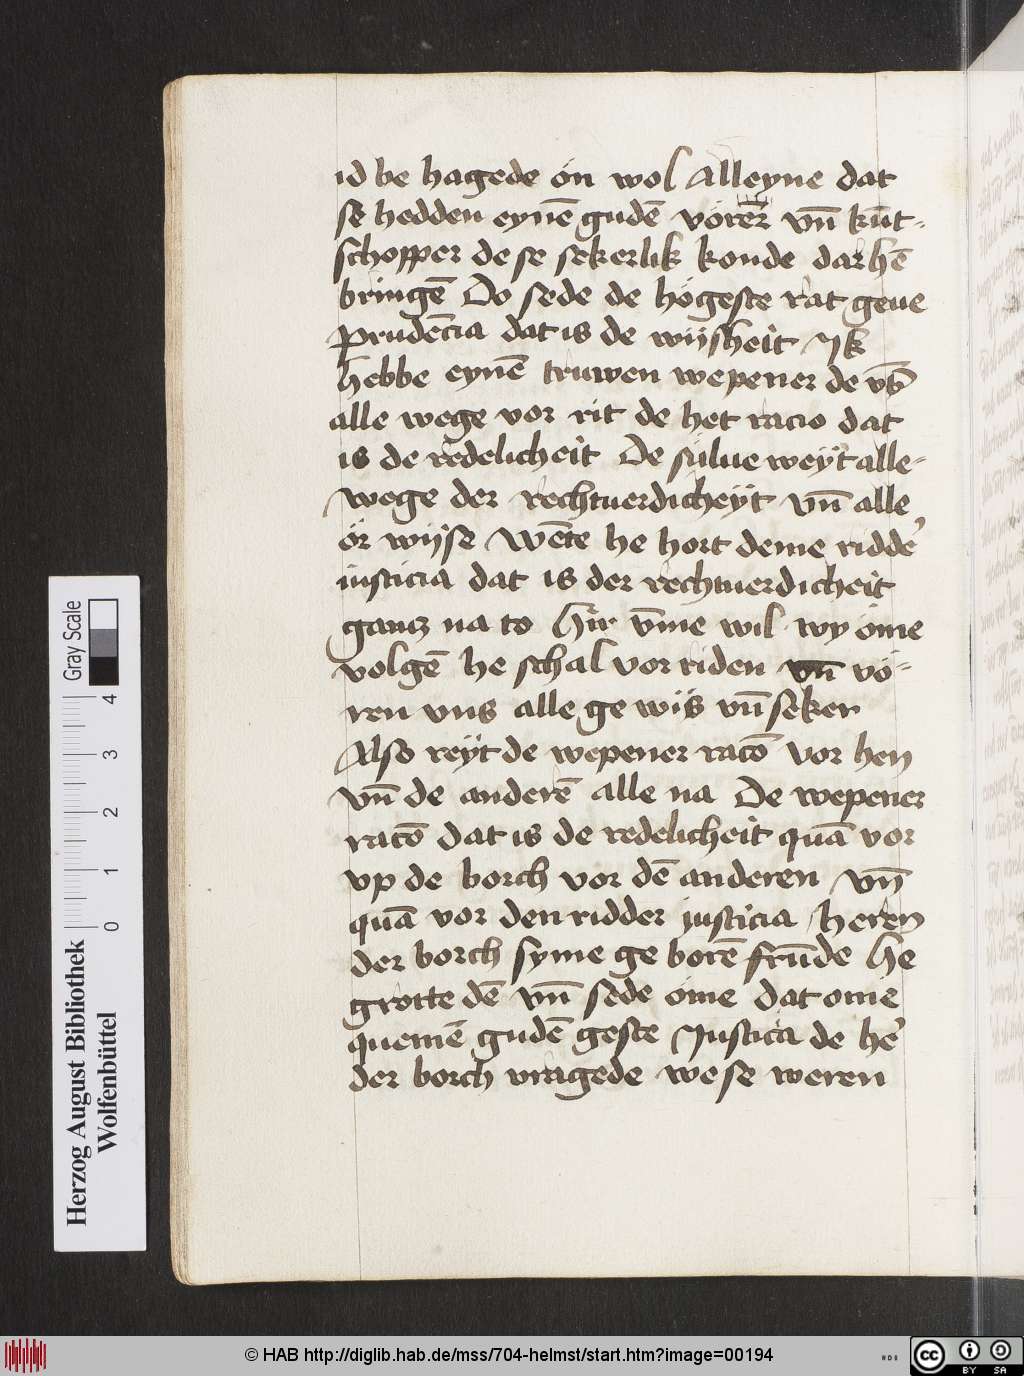 id be hagede ön wol Alleyne dat
se hedden eynē gudē vörer vn̄ kūt-
schopper de se sekerlik konde dar hē
bringē Do sede de högeste rat geue
Prudēcia dat is de wijsheit Jk
hebbe eynē truwen wepener de vs̄
alle wege vor rit de het racio dat
is de redelicheit De sulue weyt alle-
wege der rechtuerdicheyt vn̄ alle
ör wijse Wēte he hort deme ridde'
iusticia dat is der rechtuerdicheit
gancz na to Hir v̄me wil wy öme
volgē he schal vor riden vn̄ vö-
ren vns alle ge wis vn̄ seker
Also reyt de wepener racō vor hen
vn̄ de anderē alle na De wepener
racō dat is de redelicheit quā vor
vp de borch vor dē anderen Vn̄
quā vor den ridder justicia heren
der borch syme ge borē frūde He
grotte dē vn̄ sede öme dat ome
quemē gudē geste Justicia de he'
der borch vragede we se weren
Gray Scale
0 1 2 3 4
Herzog August Bibliothek
Wolfenbüttel
© HAB http://diglib.hab.de/mss/704-helmst/start.htm?image=00194
cc BY SA